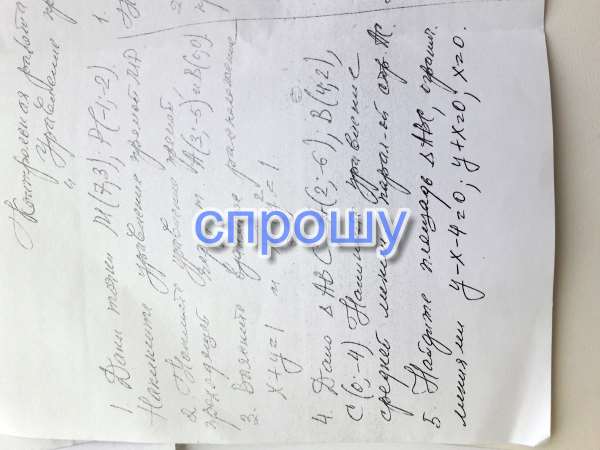 Контрольная работа
"Уравнение пр
1. Даны точки M(7,3); P(-1;-2).
Напишите уравнение прямой MP
2. Напишите уравнение прямой,
проходящей через т. A(3;-5) и B(5,9).
3. Выясните взаимное расположение
x+y=1 и
4. Дано △ABC A(2;-6); B(4,2),
C(0;-4) Напишите уравнение
средней линии парал-ой отр. AC
5. Найдите площадь △ABC, огранич.
линиями y-x-4=0; y+x=0; x=0.
спрошу